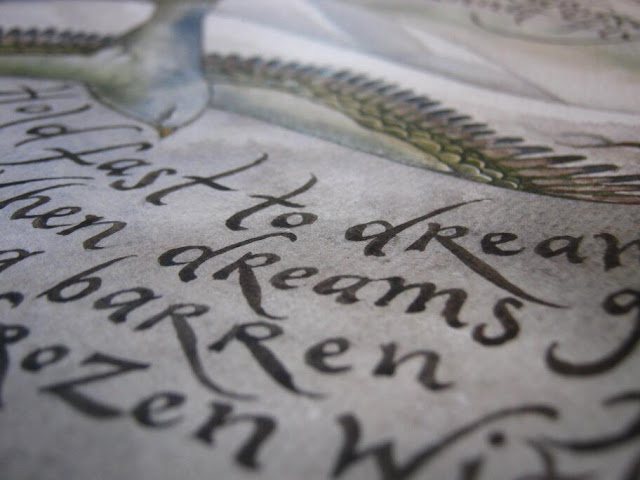 Hold fast to dream
When dreams g
a barren
frozen wit